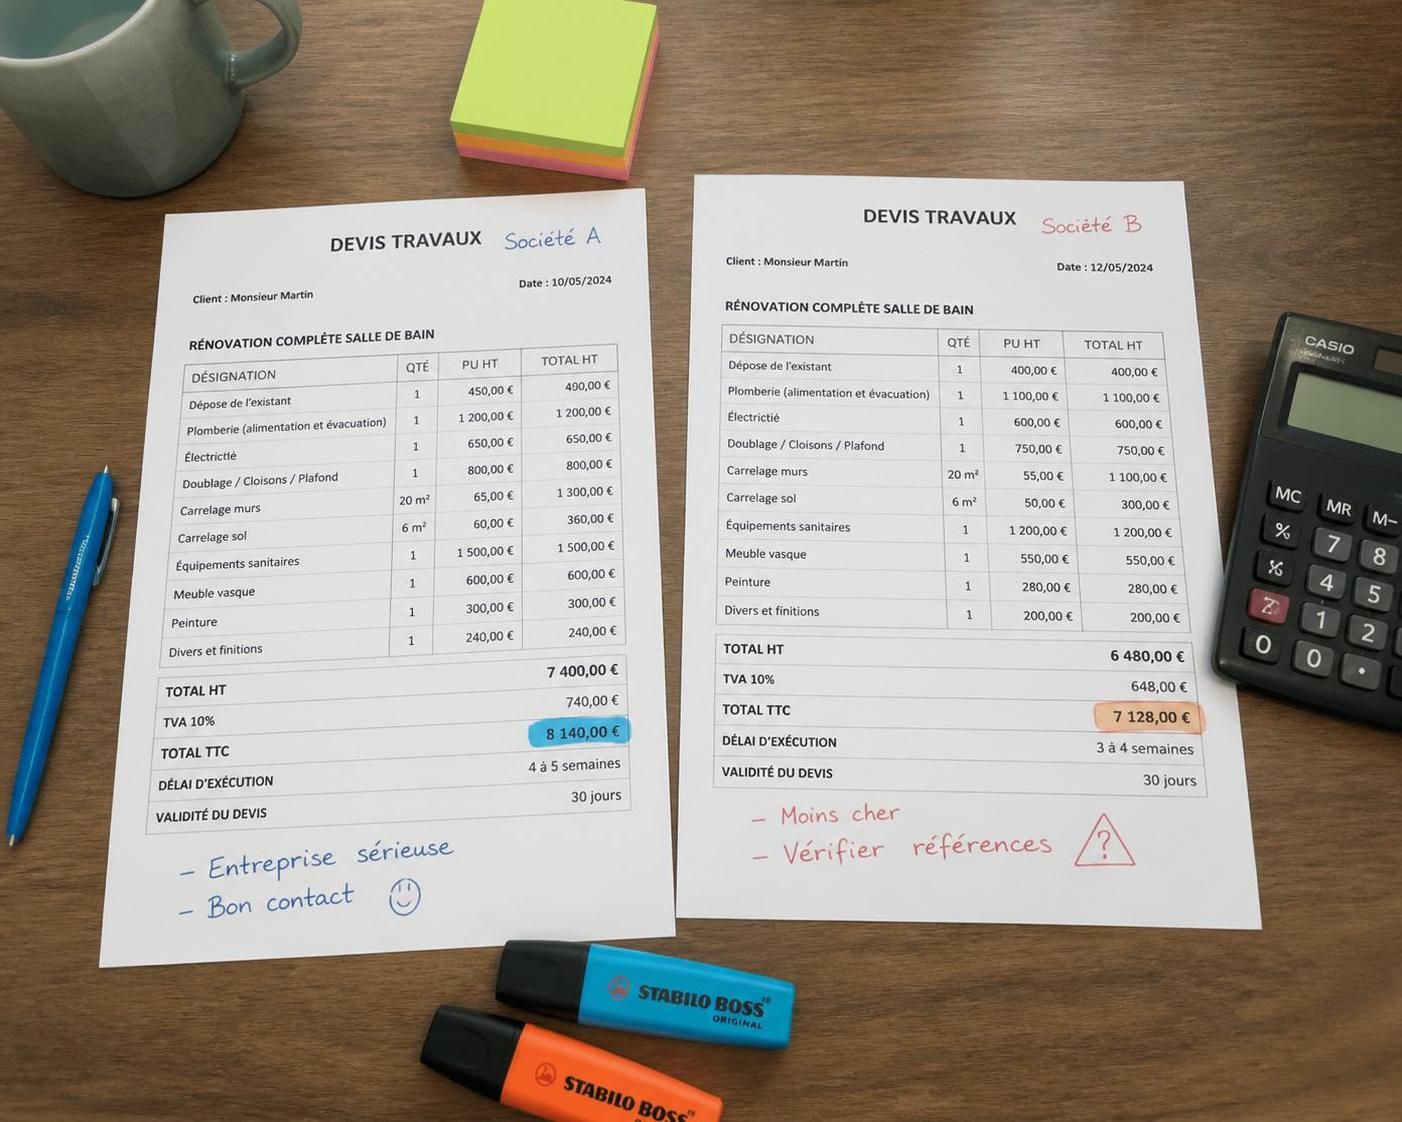 DEVIS TRAVAUX Société A
Client : Monsieur Martin Date : 10/05/2024
RÉNOVATION COMPLÈTE SALLE DE BAIN
DÉSIGNATION QTÉ PU HT TOTAL HT
Dépose de l'existant 1 450,00 € 490,00 €
Plomberie (alimentation et évacuation) 1 1 200,00 € 1 200,00 €
Électricité 1 650,00 € 650,00 €
Doublage / Cloisons / Plafond 1 800,00 € 800,00 €
Carrelage murs 20 m² 65,00 € 1 300,00 €
Carrelage sol 6 m² 60,00 € 360,00 €
Équipements sanitaires 1 1 500,00 € 1 500,00 €
Meuble vasque 1 600,00 € 600,00 €
Peinture 1 300,00 € 300,00 €
Divers et finitions 1 240,00 € 240,00 €
TOTAL HT 7 400,00 €
TVA 10% 740,00 €
TOTAL TTC 8 140,00 €
DÉLAI D'EXÉCUTION 4 à 5 semaines
VALIDITÉ DU DEVIS 30 jours
– Entreprise sérieuse
– Bon contact
DEVIS TRAVAUX Société B
Client : Monsieur Martin Date : 12/05/2024
RÉNOVATION COMPLÈTE SALLE DE BAIN
DÉSIGNATION QTÉ PU HT TOTAL HT
Dépose de l'existant 1 400,00 € 400,00 €
Plomberie (alimentation et évacuation) 1 1 100,00 € 1 100,00 €
Électictié 1 600,00 € 600,00 €
Doublage / Cloisons / Plafond 1 750,00 € 750,00 €
Carrelage murs 20 m² 55,00 € 1 100,00 €
Carrelage sol 6 m² 50,00 € 300,00 €
Équipements sanitaires 1 1 200,00 € 1 200,00 €
Meuble vasque 1 550,00 € 550,00 €
Peinture 1 280,00 € 280,00 €
Divers et finitions 1 200,00 € 200,00 €
TOTAL HT 6 480,00 €
TVA 10% 648,00 €
TOTAL TTC 7 128,00 €
DÉLAI D'EXÉCUTION 3 à 4 semaines
VALIDITÉ DU DEVIS 30 jours
– Moins cher
– Vérifier références ?
CASIO
MC MR M–
% 7 8
% 4 5
1 2
0 0 •
STABILO BOSS
ORIGINAL
STABILO BOSS